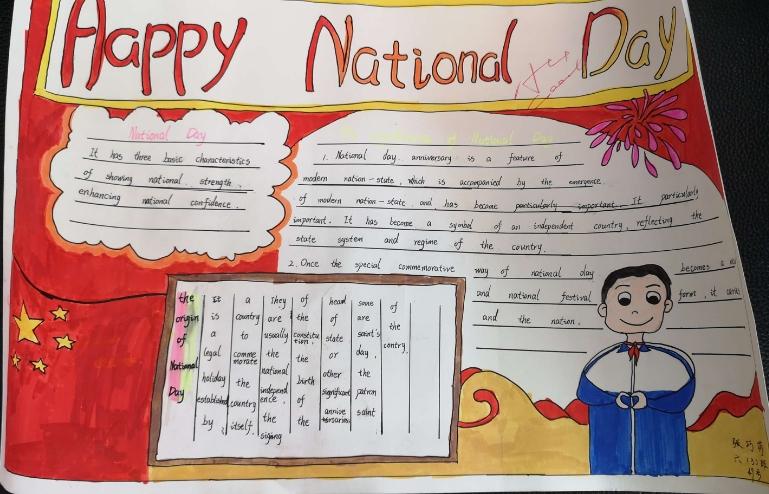 Happy National Day
National Day
It has three basic characteristics
of showing national strength,
enhancing national confidence.
of National Day
1. National day anniversary is a feature of
modern nation-state, which is accompanied by the emergence
of modern nation-state, and has become particularly important. It particularly
important. It has become a symbol of an independent country, reflecting the
state system and regime of the country.
2. Once the special commemorative way of national day becomes a
and national festival form, it
and the nation.
the origin of National Day
It is a legal holiday established by
a country to commemorate the country itself.
They are usually the national independence, the signing
of the constitution, the birth of the
head of state or other significant anniversaries
some are saint's day, the patron saint
of the contry.